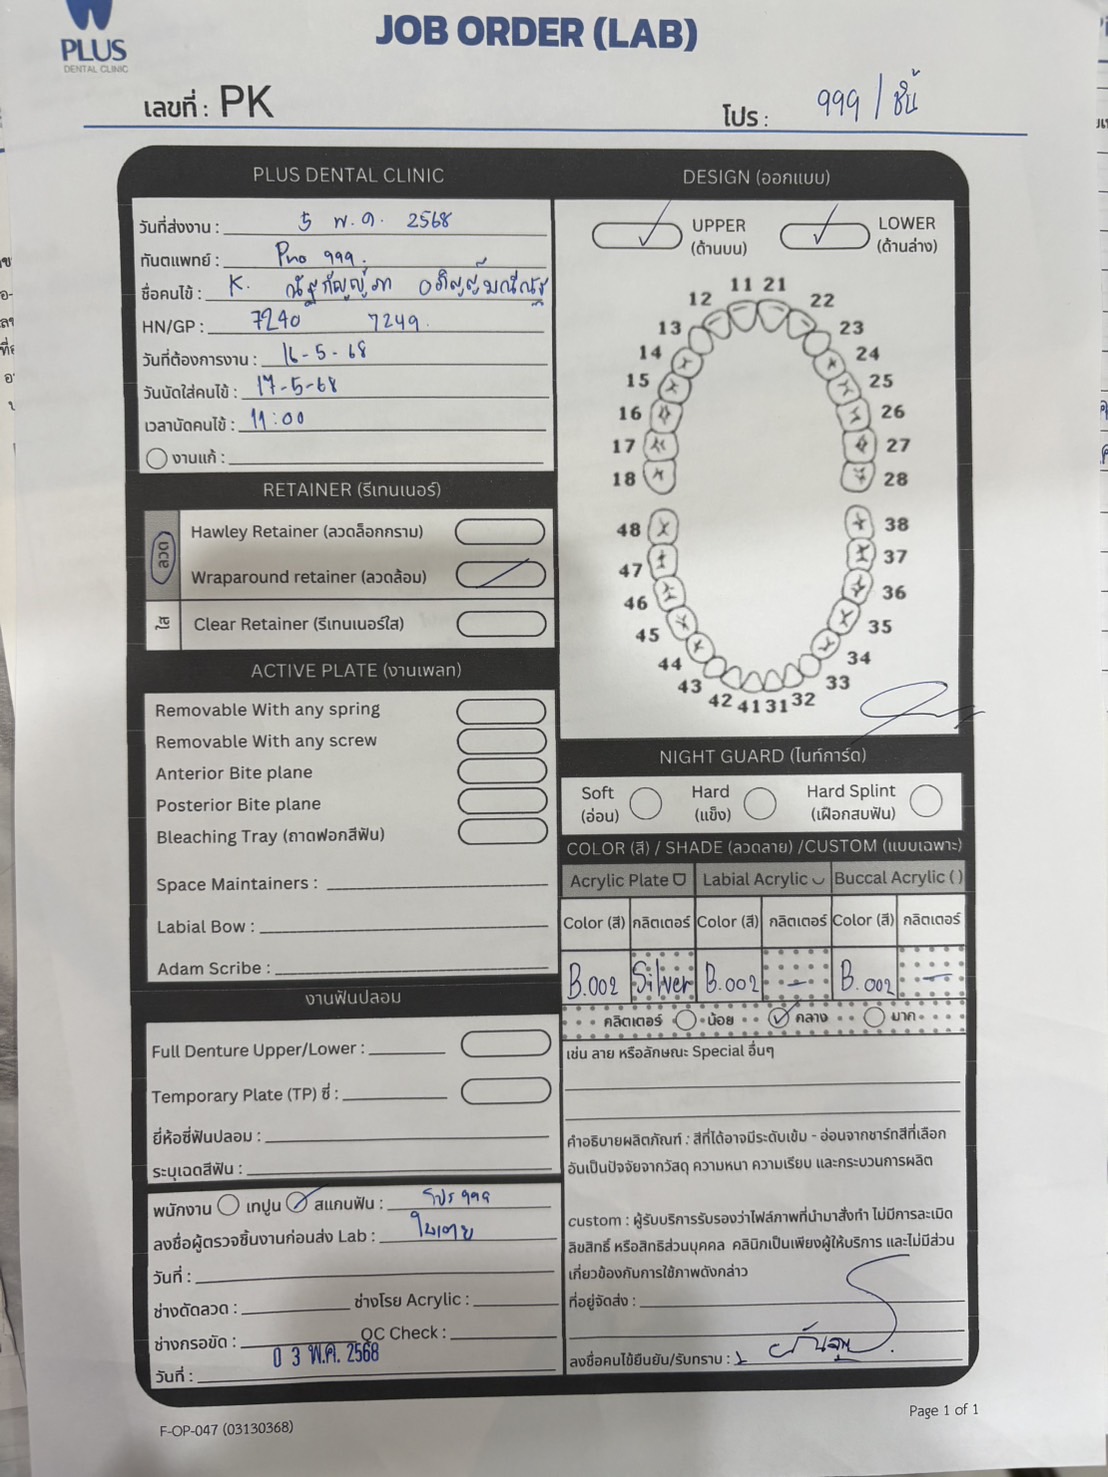 PLUS
DENTAL CLINIC
JOB ORDER (LAB)
เลขที่ : PK
โปร : 999 / ชิ้น
PLUS DENTAL CLINIC
วันที่ส่งงาน : 5 พ.ค. 2568
ทันตแพทย์ : Pro 999.
ชื่อคนไข้ : K.
HN/GP : 7240 7249
วันที่ต้องการงาน : 16-5-68
วันนัดใส่คนไข้ : 17-5-68
เวลานัดคนไข้ : 11:00
งานแก้ :
RETAINER (รีเทนเนอร์)
ลวด
Hawley Retainer (ลวดล็อกกราม)
Wraparound retainer (ลวดล้อม)
ใส
Clear Retainer (รีเทนเนอร์ใส)
ACTIVE PLATE (งานเพลท)
Removable With any spring
Removable With any screw
Anterior Bite plane
Posterior Bite plane
Bleaching Tray (ถาดฟอกสีฟัน)
Space Maintainers :
Labial Bow :
Adam Scribe :
งานฟันปลอม
Full Denture Upper/Lower :
Temporary Plate (TP) ซี่ :
ยี่ห้อซี่ฟันปลอม :
ระบุเฉดสีฟัน :
พนักงาน เทปูน สแกนฟัน : โปร 999
ลงชื่อผู้ตรวจชิ้นงานก่อนส่ง Lab : ใบเตย
วันที่ :
ช่างดัดลวด : ช่างโรย Acrylic :
ช่างกรอขัด : QC Check :
0 3 พ.ค. 2568
วันที่ :
DESIGN (ออกแบบ)
UPPER (ด้านบน)
LOWER (ด้านล่าง)
11 21
12 22
13 23
14 24
15 25
16 26
17 27
18 28
48 38
47 37
46 36
45 35
44 34
43 33
42 41 31 32
NIGHT GUARD (ไนท์การ์ด)
Soft (อ่อน)
Hard (แข็ง)
Hard Splint (เฝือกสบฟัน)
COLOR (สี) / SHADE (ลวดลาย) /CUSTOM (แบบเฉพาะ)
Acrylic Plate Labial Acrylic Buccal Acrylic ( )
Color (สี) กลิตเตอร์ Color (สี) กลิตเตอร์ Color (สี) กลิตเตอร์
B.002 Silver B.002 - B.002 -
กลิตเตอร์ น้อย กลาง มาก
เช่น ลาย หรือลักษณะ Special อื่นๆ
คำอธิบายผลิตภัณฑ์ : สีที่ได้อาจมีระดับเข้ม - อ่อนจากชาร์ทสีที่เลือก
อันเป็นปัจจัยจากวัสดุ ความหนา ความเรียบ และกระบวนการผลิต
custom : ผู้รับบริการรับรองว่าไฟล์ภาพที่นำมาสั่งทำ ไม่มีการละเมิด
ลิขสิทธิ์ หรือสิทธิส่วนบุคคล คลินิกเป็นเพียงผู้ให้บริการ และไม่มีส่วน
เกี่ยวข้องกับการใช้ภาพดังกล่าว
ที่อยู่จัดส่ง :
ลงชื่อคนไข้ยืนยัน/รับทราบ :
F-OP-047 (03130368)
Page 1 of 1